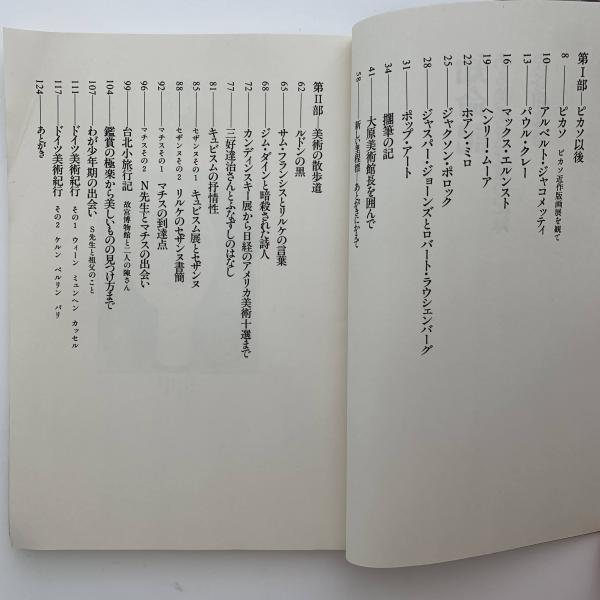 第Ⅰ部 ピカソ以後
8──ピカソ ピカソ近作版画展を観て
10──アルベルト・ジャコメッティ
13──パウル・クレー
16──マックス・エルンスト
19──ヘンリー・ムーア
22──ホアン・ミロ
25──ジャクソン・ポロック
28──ジャスパー・ジョーンズとロバート・ラウシェンバーグ
31──ポップ・アート
34──擱筆の記
41──大原美術館長を囲んで
58──新しい美程標──あとがきにかえて
第Ⅱ部 美術の散歩道
62──ルドンの黒
65──サム・フランシスとリルケの言葉
68──ジム・ダインと暗殺された詩人
72──カンディンスキー展から日経のアメリカ美術十選まで
77──三好達治さんとふなずしのはなし
81──キュビスムの抒情性
85──セザンヌその1 キュビスム展とセザンヌ
88──セザンヌその2 リルケのセザンヌ書簡
92──マチスその1 マチスの到達点
96──マチスその2 N先生とマチスの出会い
99──台北小旅行記 故宮博物館と二人の陳さん
104──鑑賞の極楽から美しいものの見つけ方まで
107──わが少年期の出会い S先生と祖父のこと
111──ドイツ美術紀行 その1 ウィーン ミュンヘン カッセル
117──ドイツ美術紀行 その2 ケルン ベルリン パリ
124──あとがき